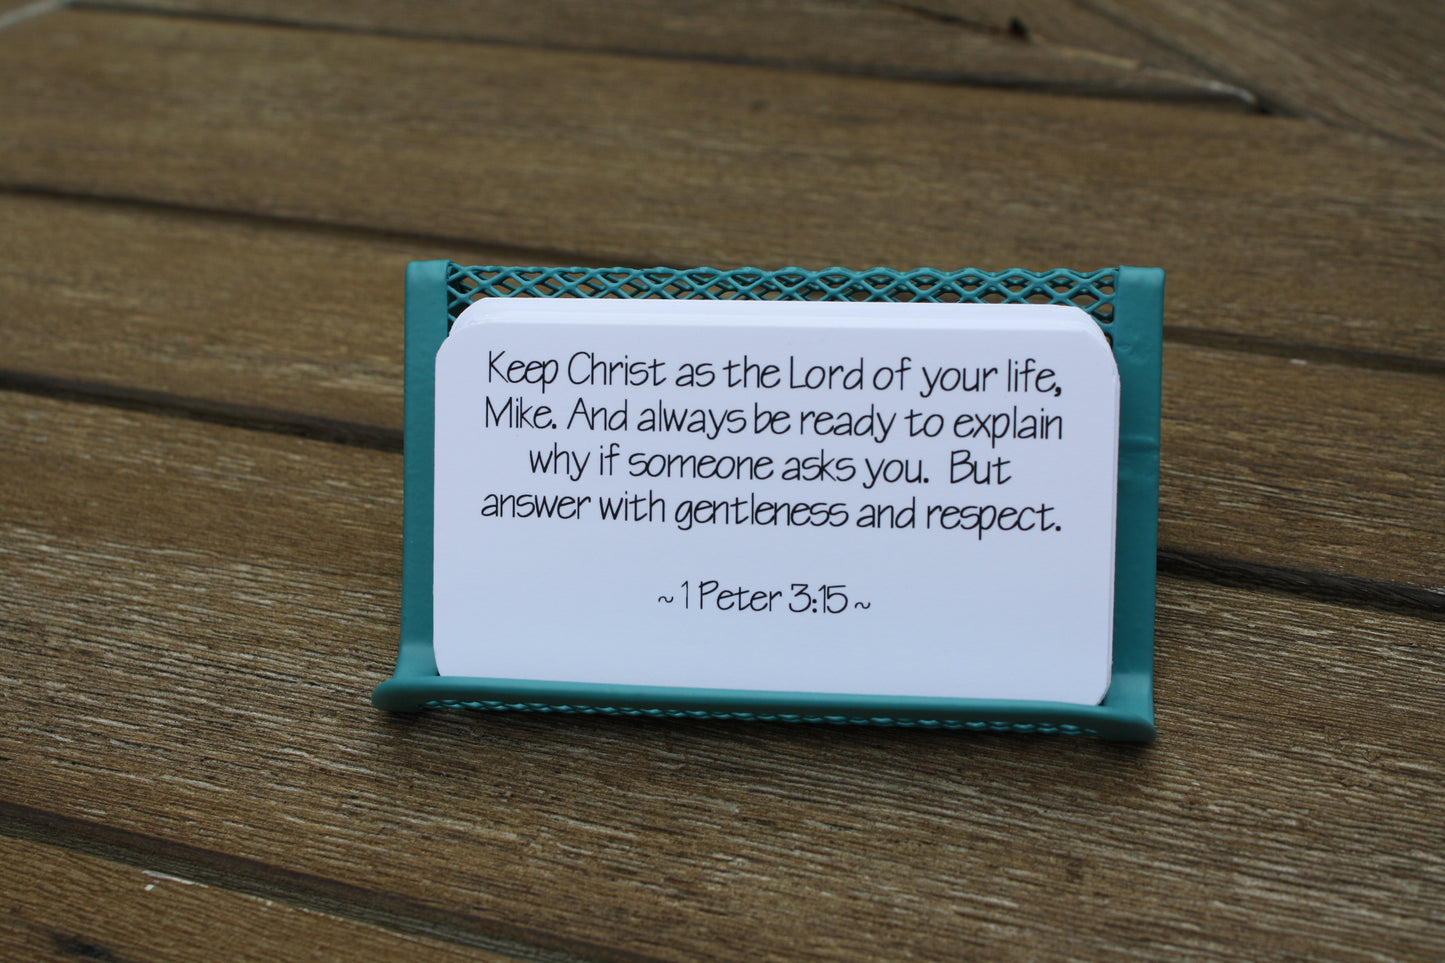 Keep Christ as the Lord of your life,
Mike. And always be ready to explain
why if someone asks you. But
answer with gentleness and respect.
~1 Peter 3:15~